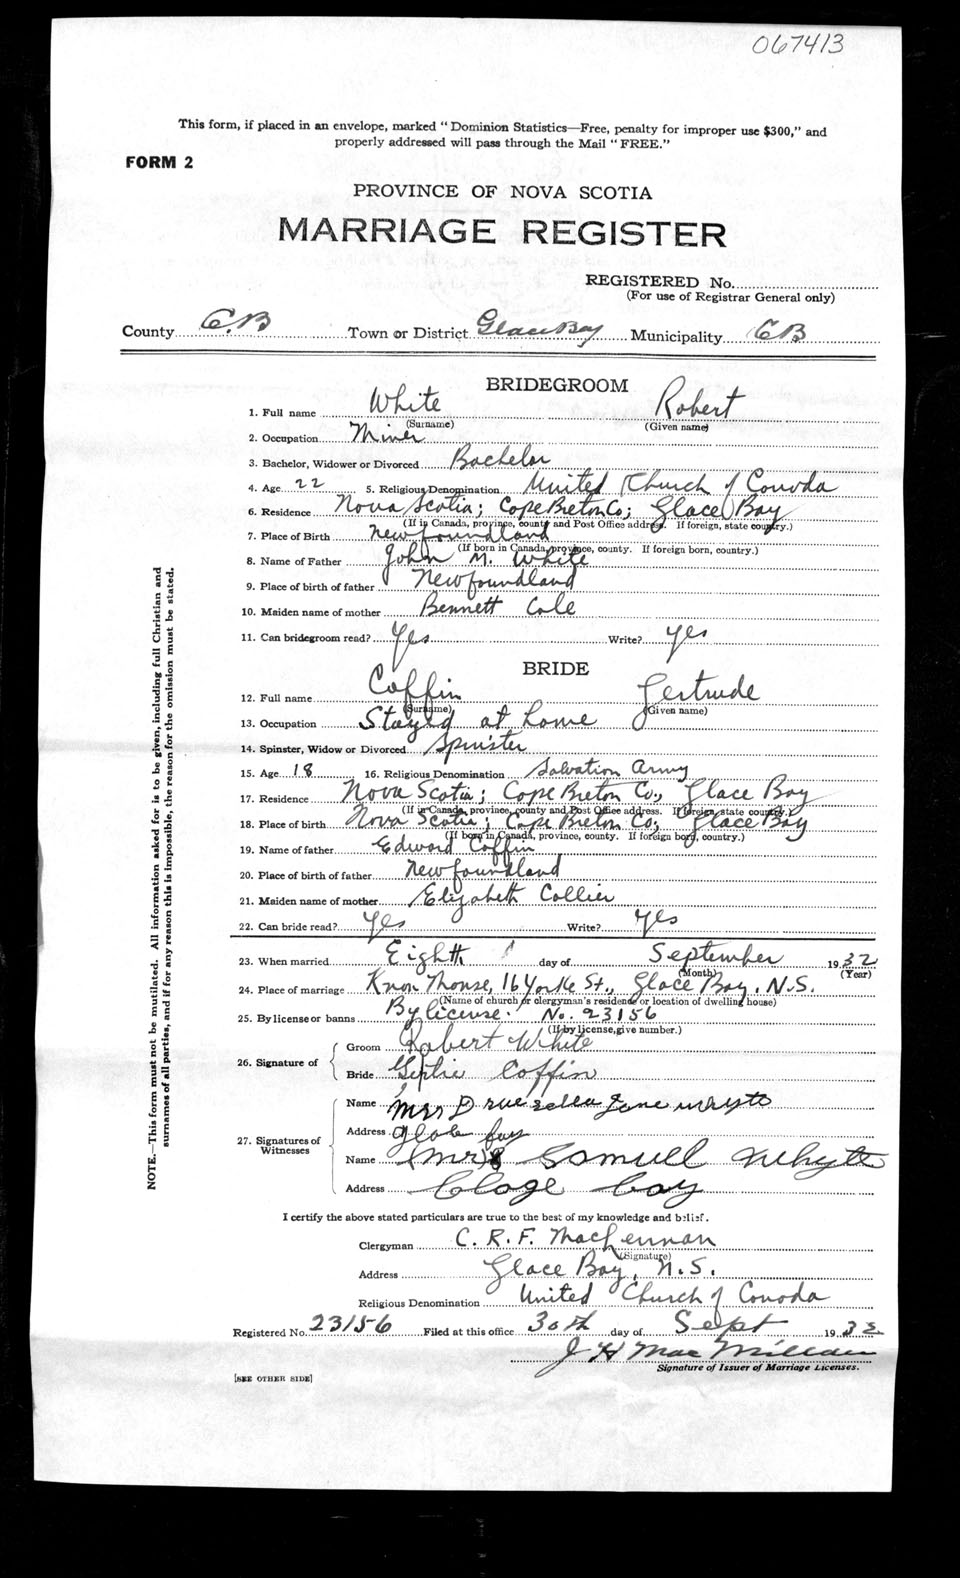 067413
This form, if placed in an envelope, marked "Dominion Statistics—Free, penalty for improper use $300," and
properly addressed will pass through the Mail "FREE."
FORM 2
PROVINCE OF NOVA SCOTIA
MARRIAGE REGISTER
REGISTERED No.
(For use of Registrar General only)
County C.B Town or District Glace Bay Municipality CB
BRIDEGROOM
1. Full name White Robert
(Surname) (Given name)
2. Occupation Miner
3. Bachelor, Widower or Divorced Bachelor
4. Age 22 5. Religious Denomination United Church of Canada
6. Residence Nova Scotia; Cape Breton Co; Glace Bay
(If in Canada, province, county and Post Office address. If foreign, state country.)
7. Place of Birth Newfoundland
(If born in Canada, province, county. If foreign born, country.)
8. Name of Father John M. White
9. Place of birth of father Newfoundland
10. Maiden name of mother Bennett Cole
11. Can bridegroom read? Yes Write? Yes
BRIDE
12. Full name Coffin Gertrude
(Surname) (Given name)
13. Occupation Stayed at home
14. Spinster, Widow or Divorced Spinster
15. Age 18 16. Religious Denomination Salvation Army
17. Residence Nova Scotia; Cape Breton Co., Glace Bay
(If in Canada, province, county and Post Office address. If foreign, state country.)
18. Place of birth Nova Scotia; Cape Breton Co; Glace Bay
(If born in Canada, province, county. If foreign born, country.)
19. Name of father Edward Coffin
20. Place of birth of father Newfoundland
21. Maiden name of mother Elizabeth Collier
22. Can bride read? Yes Write? Yes
23. When married Eighth day of September 1932
(Month) (Year)
24. Place of marriage Knox Manse, 16 Yorke St., Glace Bay, N.S.
(Name of church or clergyman's residence or location of dwelling house)
25. By license or banns By license. No. 23156
(If by license, give number.)
26. Signature of
Groom Robert White
Bride Coffin
27. Signatures of
Witnesses
Name Mrs Jane whyte
Address
Name Mrs Samuell Whyte
Address bay
I certify the above stated particulars are true to the best of my knowledge and belief.
Clergyman C. R. F. MacLennan
(Signature)
Address Glace Bay, N.S.
Religious Denomination United Church of Canada
Registered No. 23156 Filed at this office 30th day of Sept 1932
J H MacMillan
Signature of Issuer of Marriage Licenses.
[SEE OTHER SIDE]
NOTE.—This form must not be mutilated. All information asked for is to be given, including full Christian and
surnames of all parties, and if for any reason this is impossible, the reason for the omission must be stated.